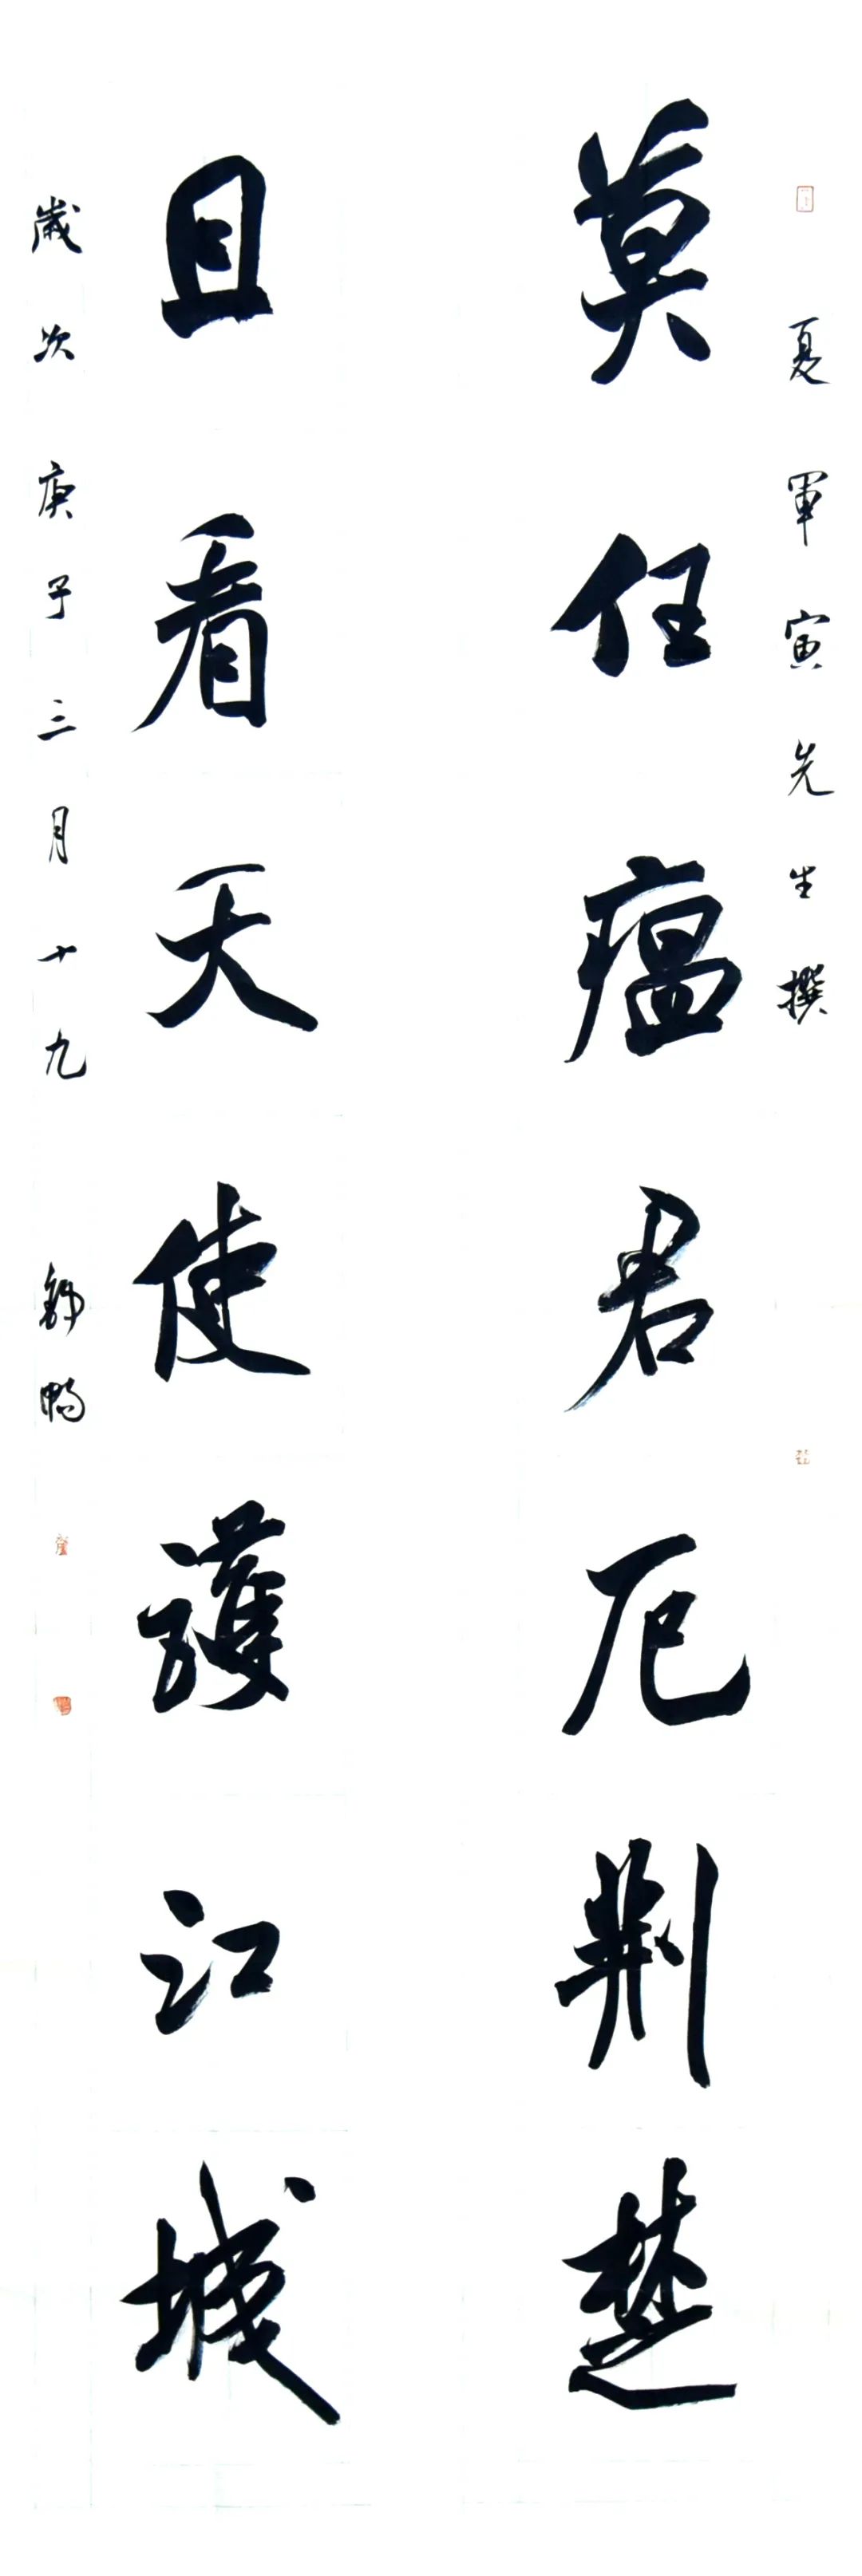 夏軍寅先生撰
莫任瘟君厄荆楚
且看天使護江城
歲次庚子三月十九 郭暢